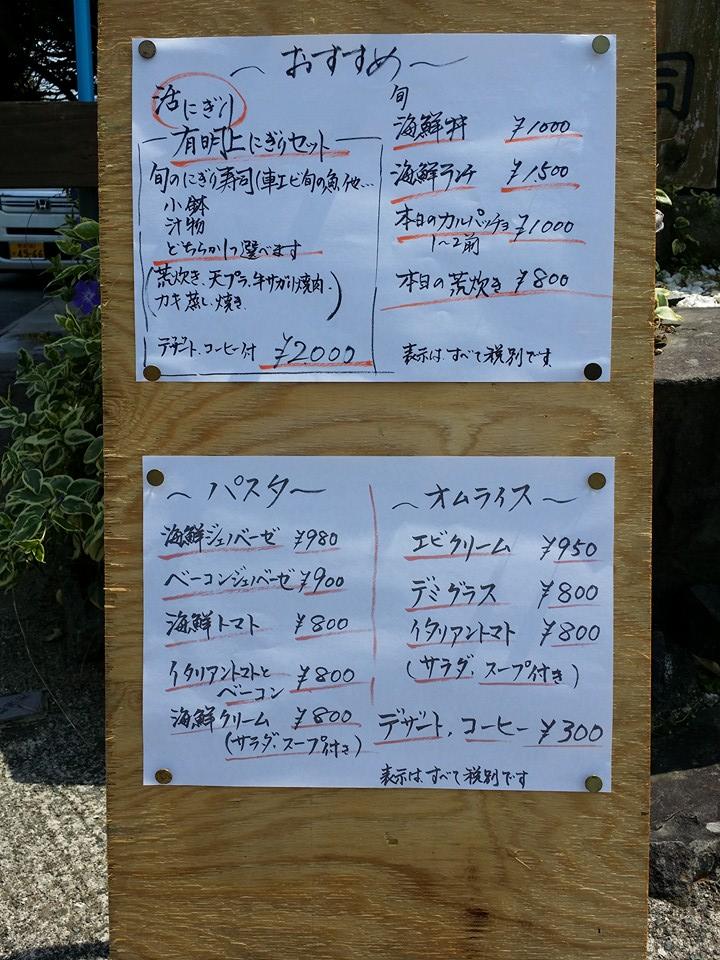 ～おすすめ～
活にぎり
有明上にぎりセット
旬のにぎり寿司(車エビ旬の魚、他…
小鉢
汁物
どちらか1つ選べます
(荒炊き、天プラ、牛サガリ焼肉、
カキ蒸し、焼き)
デザート、コーヒー付 ¥2000
旬
海鮮丼 ¥1000
海鮮ランチ ¥1,500
本日のカルパッチョ ¥1000
1～2前
本日の荒炊き ¥800
表示は、すべて税別です
～パスタ～
海鮮ジェノベーゼ ¥980
ベーコンジェノベーゼ ¥900
海鮮トマト ¥800
イタリアントマトと
ベーコン ¥800
海鮮クリーム ¥800
(サラダ、スープ付き)
～オムライス～
エビクリーム ¥950
デミグラス ¥800
イタリアントマト ¥800
(サラダ、スープ付き)
デザート、コーヒー ¥300
表示は、すべて税別です
司